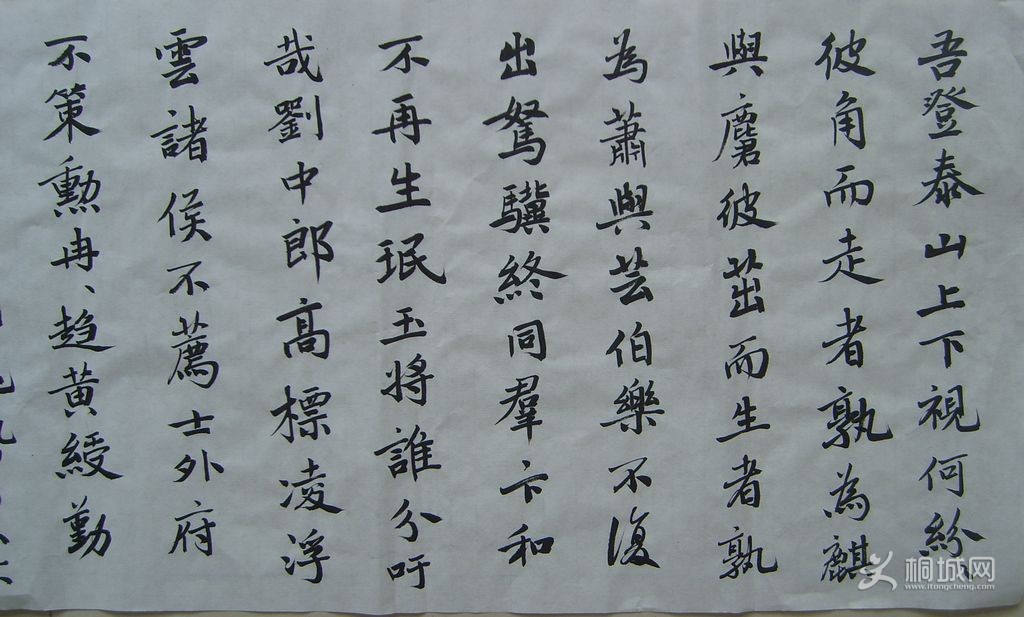 吾登泰山上下視何紛、
彼角而走者孰為麒
與麏彼茁而生者孰
為蕭與芸伯樂不復
出駑驥終同羣卞和
不再生珉玉將誰分吁
哉劉中郎高標凌浮
雲諸侯不薦士外府
不策勳冉、趋黃綬勤
桐城网
www.itongcheng.com